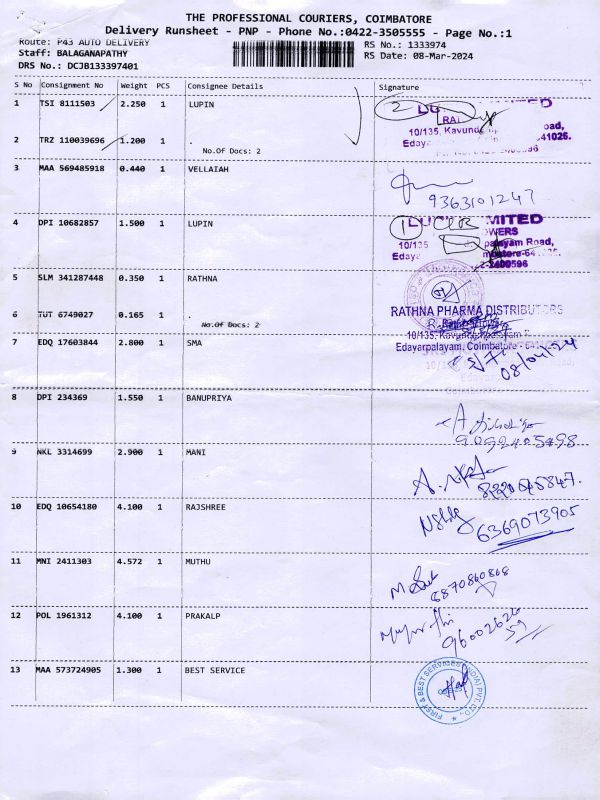 THE PROFESSIONAL COURIERS, COIMBATORE
Delivery Runsheet - PNP - Phone No.:0422-3505555 - Page No.:1
Route: P43 AUTO DELIVERY
Staff: BALAGANAPATHY
DRS No.: DCJB133397401
RS No.: 1333974
RS Date: 08-Mar-2024
S No Consignment No Weight PCS Consignee Details Signature
1 TSI 8111503 2.250 1 LUPIN
2
10/135, Kavund
Edaya
2 TRZ 110039696 1.200 1 .
No.Of Docs: 2
3 MAA 569485918 0.440 1 VELLAIAH
9363101247
4 DPI 10682857 1.500 1 LUPIN
1
10/135
Edaya
5 SLM 341287448 0.350 1 RATHNA
RATHNA PHARMA DISTRIBUTORS
6 TUT 6749027 0.165 1 .
No.Of Docs: 2
Edayarpalayam, Coimbatore - 641025
7 EDQ 17603844 2.800 1 SMA
08/04/24
8 DPI 234369 1.550 1 BANUPRIYA
9 NKL 3314699 2.900 1 MANI
10 EDQ 10654180 4.100 1 RAJSHREE
6369073905
11 MNI 2411303 4.572 1 MUTHU
6870860868
12 POL 1961312 4.100 1 PRAKALP
96002626
59
13 MAA 573724905 1.300 1 BEST SERVICE
FIRST & BEST SERVICES (INDIA) PVT. LTD.